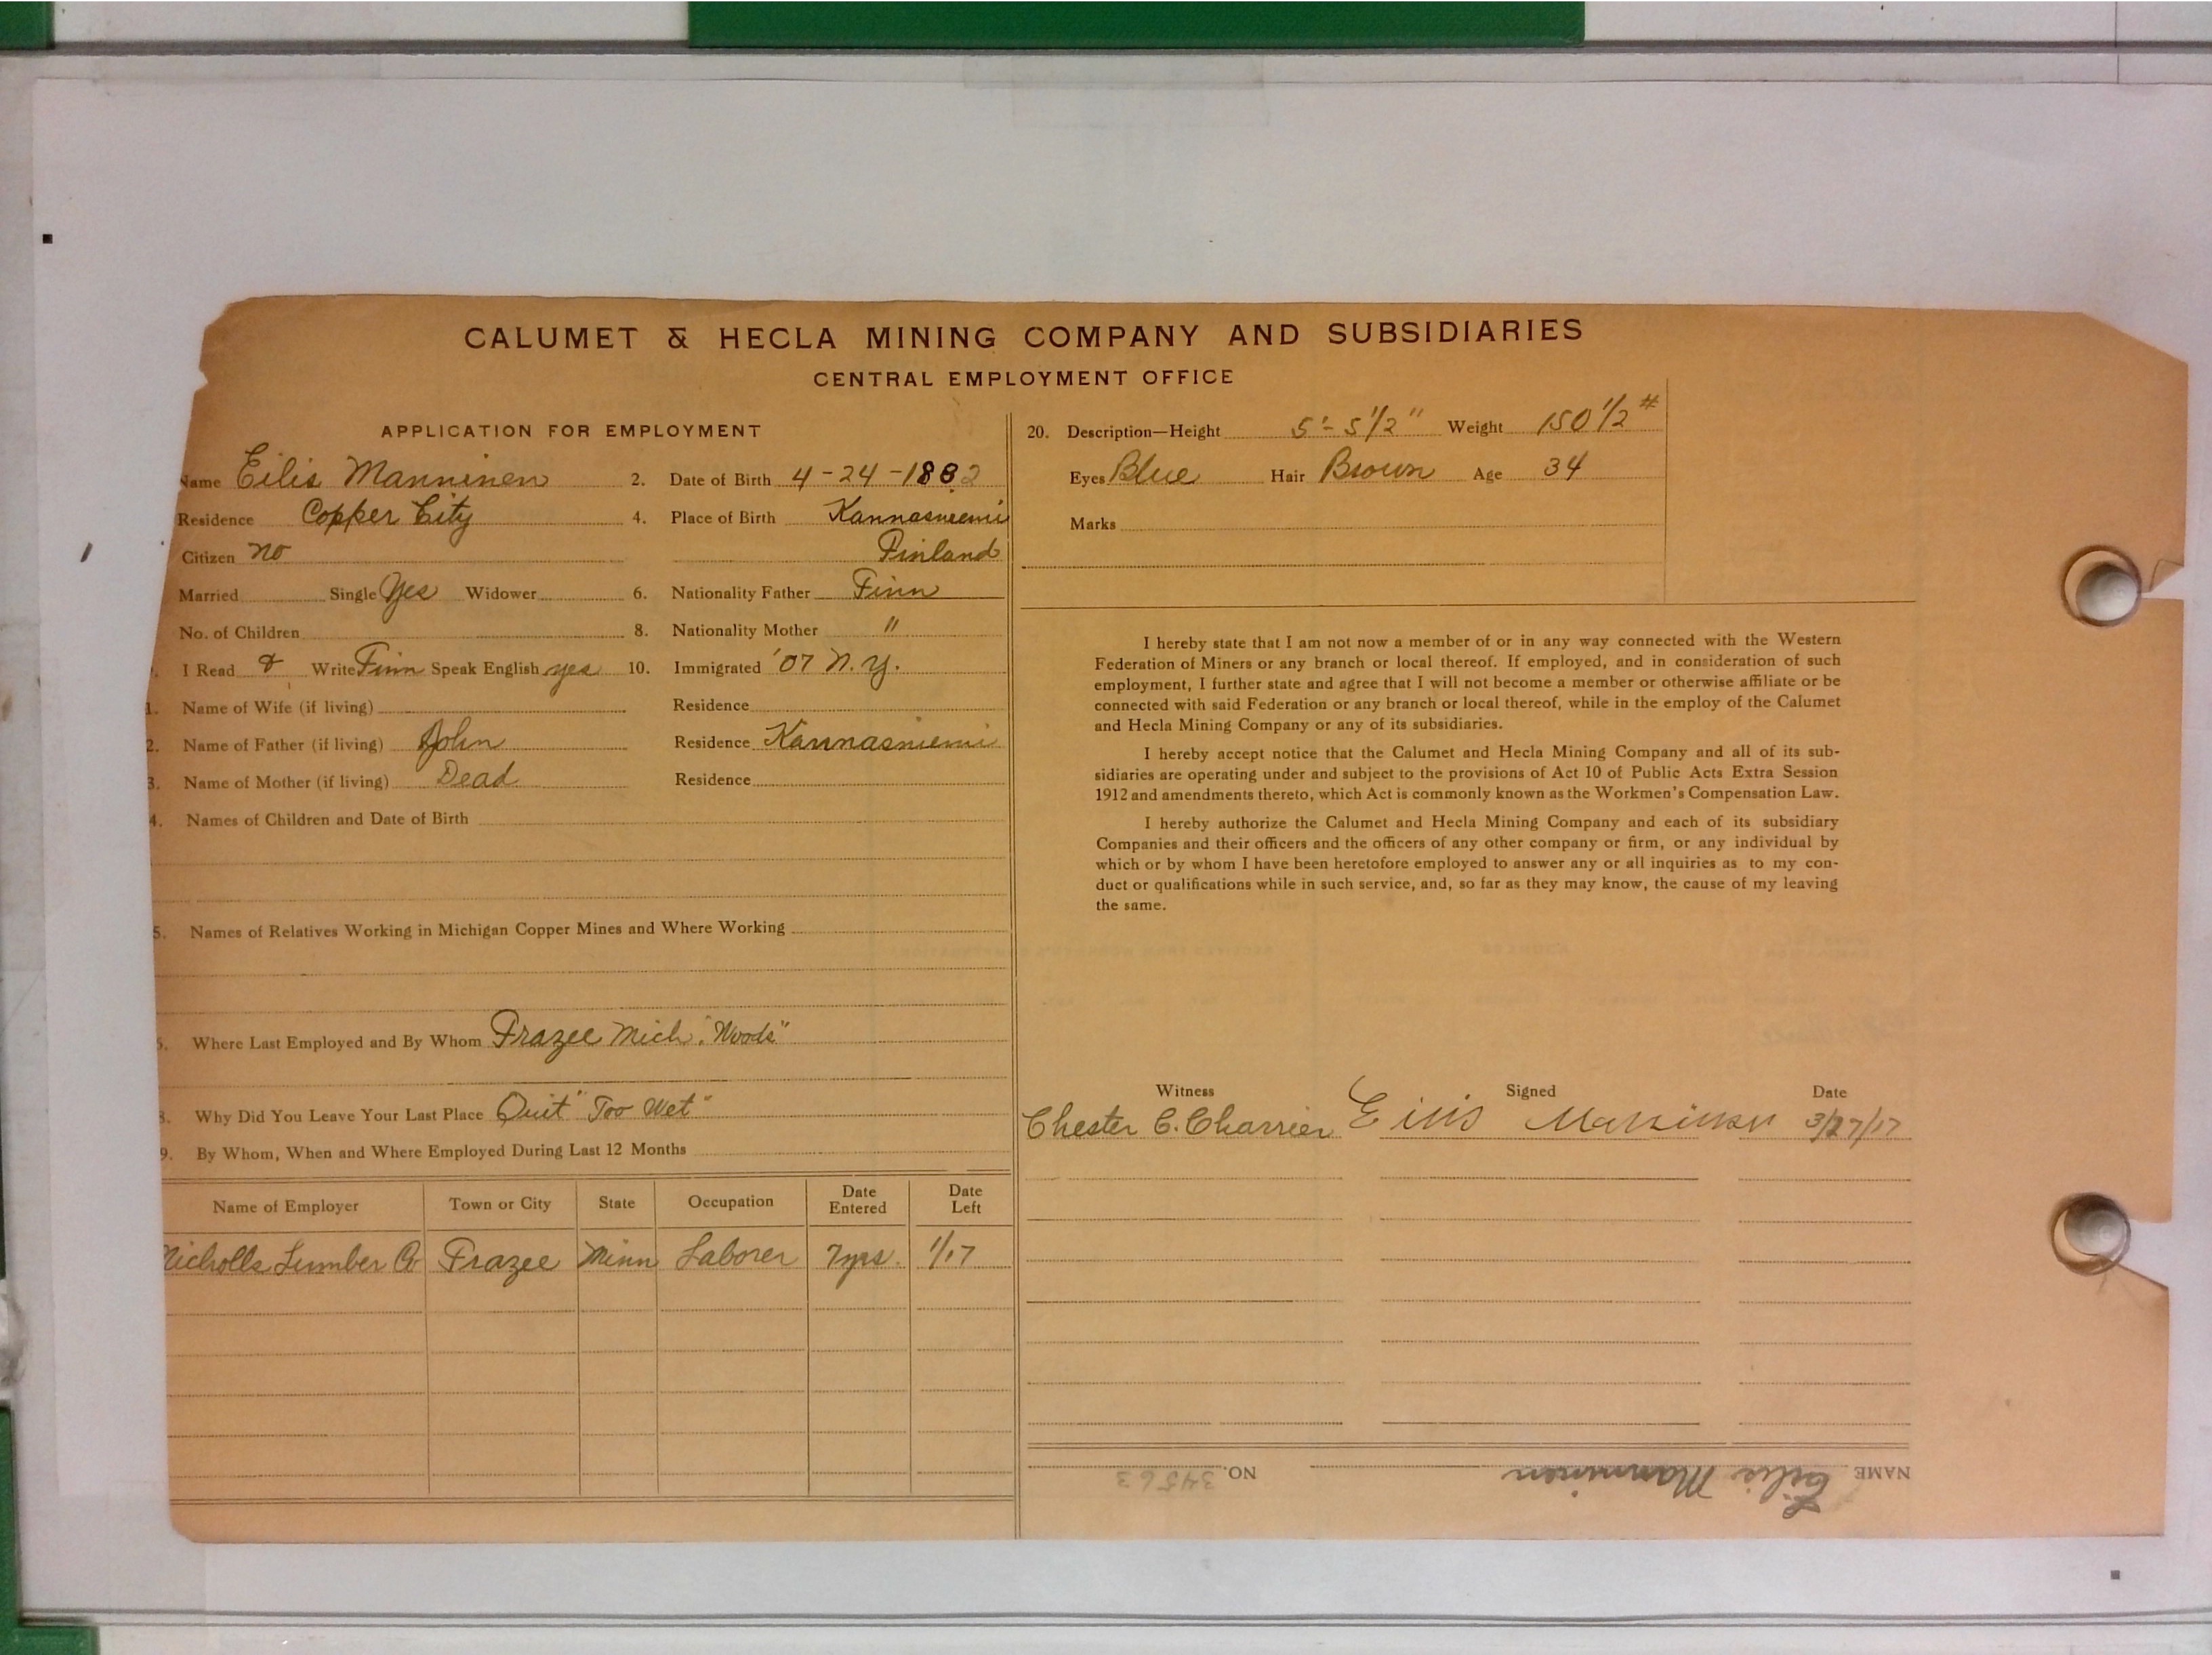 CALUMET & HECLA MINING COMPANY AND SUBSIDIARIES
CENTRAL EMPLOYMENT OFFICE
APPLICATION FOR EMPLOYMENT
Name Eilis Manninen 2. Date of Birth 4-24-1882
Residence Copper City 4. Place of Birth Kannasniemi
Citizen no Finland
Married Single Yes Widower 6. Nationality Father Finn
No. of Children 8. Nationality Mother "
I Read & Write Finn Speak English yes 10. Immigrated '07 N.Y.
1. Name of Wife (if living) Residence
2. Name of Father (if living) John Residence Kannasniemi
3. Name of Mother (if living) Dead Residence
4. Names of Children and Date of Birth
5. Names of Relatives Working in Michigan Copper Mines and Where Working
6. Where Last Employed and By Whom Frazee Mich. "Woods"
8. Why Did You Leave Your Last Place Quit "Too Wet"
9. By Whom, When and Where Employed During Last 12 Months
Name of Employer Town or City State Occupation Date Entered Date Left
Nicholls Lumber Co Frazee Minn Laborer 7yrs. 1/17
20. Description—Height 5'-5 1/2" Weight 150 1/2 #
Eyes Blue Hair Brown Age 34
Marks
I hereby state that I am not now a member of or in any way connected with the Western
Federation of Miners or any branch or local thereof. If employed, and in consideration of such
employment, I further state and agree that I will not become a member or otherwise affiliate or be
connected with said Federation or any branch or local thereof, while in the employ of the Calumet
and Hecla Mining Company or any of its subsidiaries.
I hereby accept notice that the Calumet and Hecla Mining Company and all of its sub-
sidiaries are operating under and subject to the provisions of Act 10 of Public Acts Extra Session
1912 and amendments thereto, which Act is commonly known as the Workmen's Compensation Law.
I hereby authorize the Calumet and Hecla Mining Company and each of its subsidiary
Companies and their officers and the officers of any other company or firm, or any individual by
which or by whom I have been heretofore employed to answer any or all inquiries as to my con-
duct or qualifications while in such service, and, so far as they may know, the cause of my leaving
the same.
Witness Signed Date
Chester C. Charrier Eilis Manninen 3/27/17
NAME Eilis Manninen NO. 34563